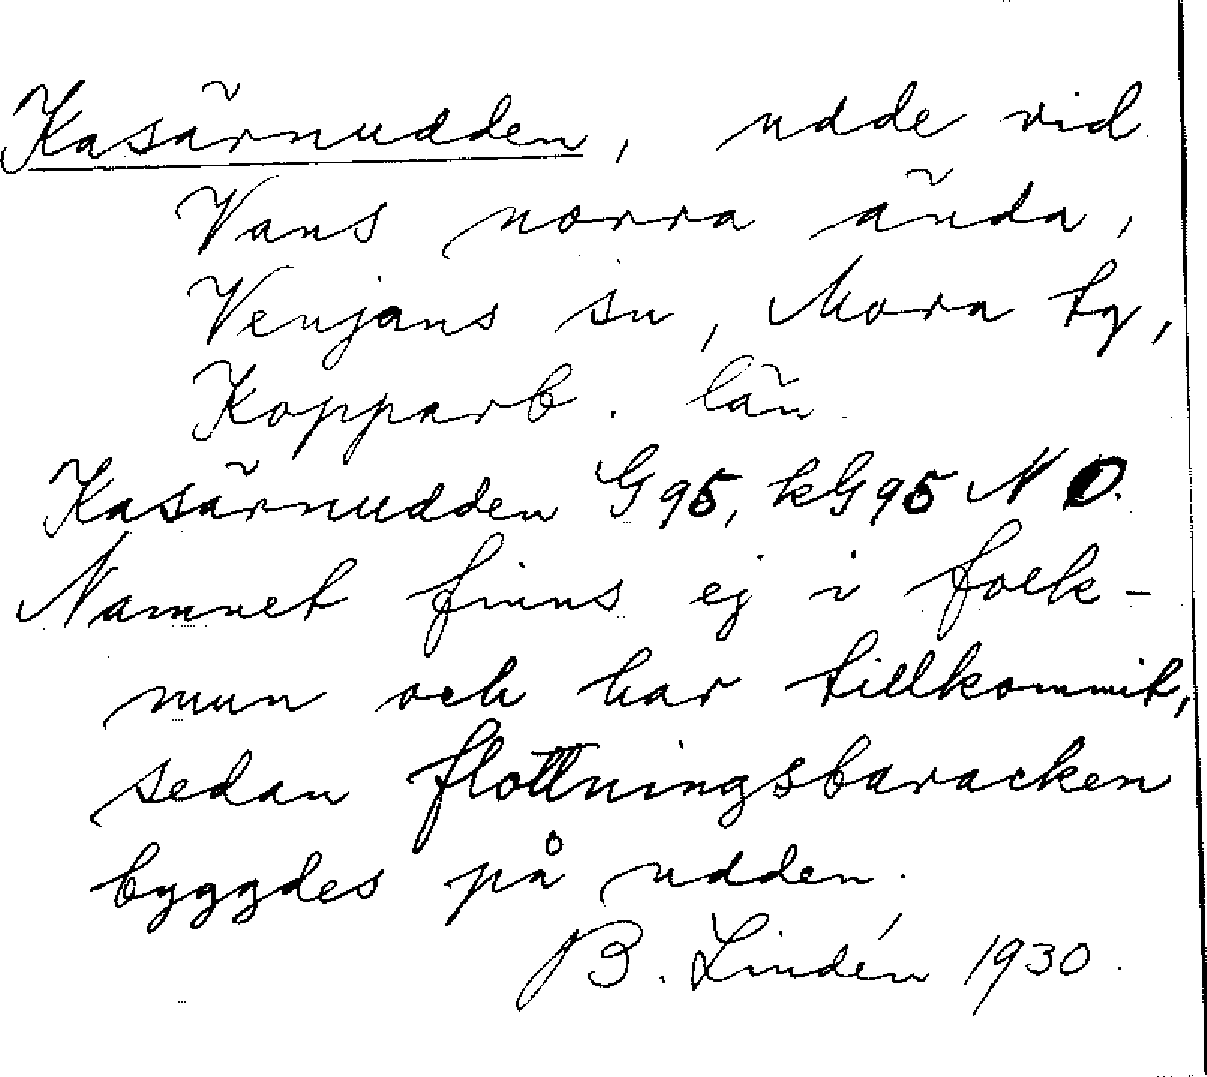 Kasärnudden, udde vid
Vans norra ända,
Venjans sn, Mora tg,
Kopparb. län
Kasärnudden G95, kG95 NO.
Namnet finns ej i folk-
mun och har tillkommit,
sedan flottningsbaracken
byggdes på udden.
B. Lindén 1930.